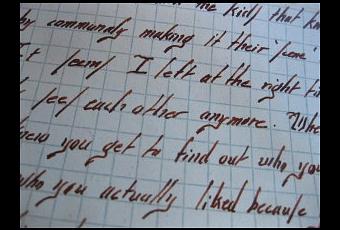 the kids that
by commundy making it their
I left at the right
feel each other anymore.
you get to find out who you
who you actually liked because